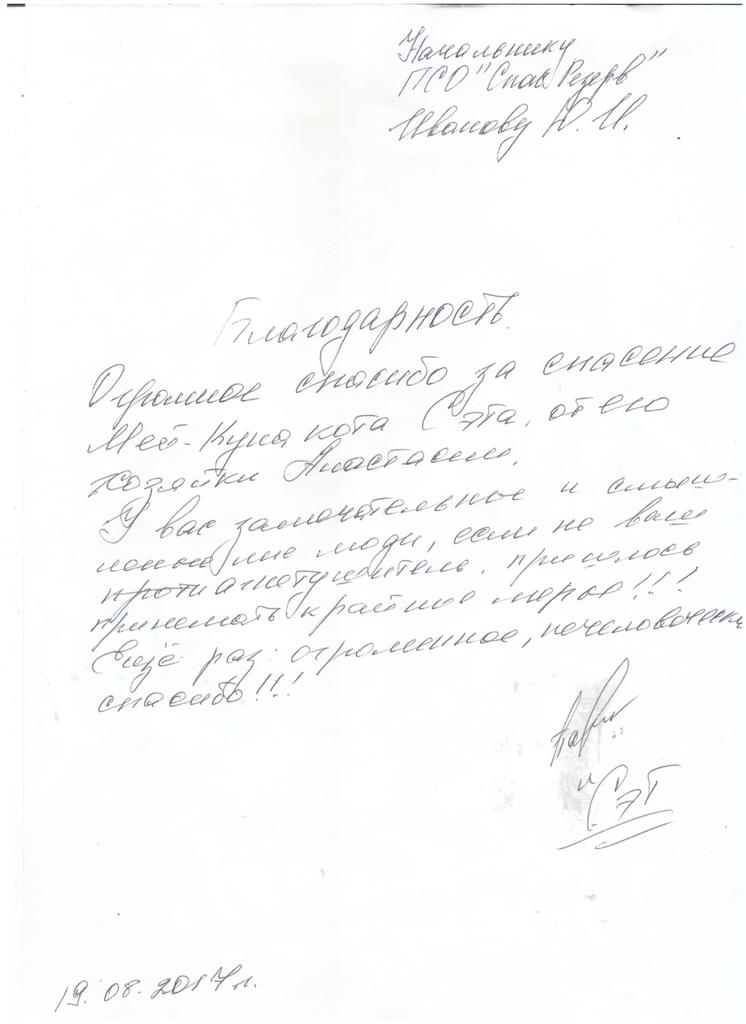 Начальнику
ПСО "Спас Резерв"
Иванову Ю. И.
Благодарность.
Огромное спасибо за спасение
Мей-Куна кота Сэта, от его
хозяйки Анастасии.
У вас замечательные и смыш-
люди, если не ваш
пришлось
принемать крайние меры!!!
Ещё раз: огроменное, нечеловеческ
спасибо!!!
и
Сэт
19. 08. 2017г.